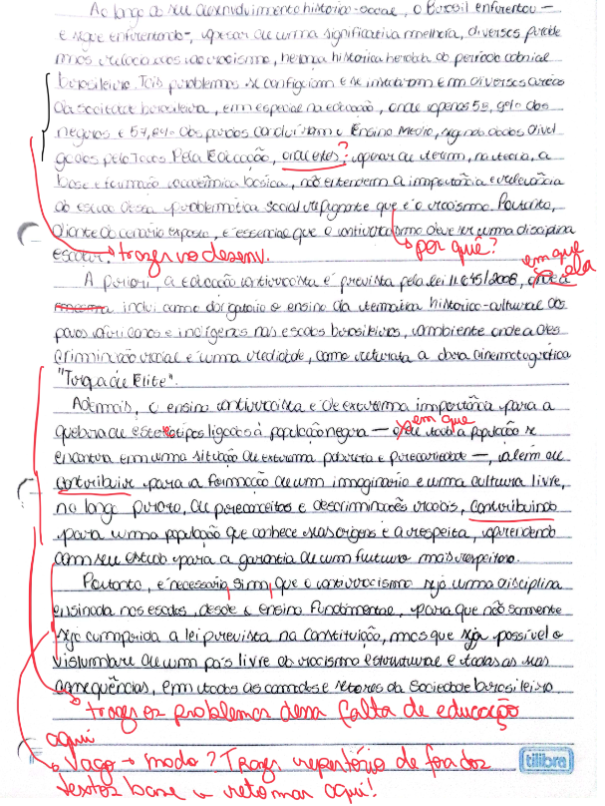 Ao longo do seu desenvolvimento histórico-social, o Brasil enfrentou –
e segue enfrentando –, apesar de uma significativa melhora, diversos proble
mas relacionados ao racismo, herança histórica herdada do período colonial
brasileiro. Tais problemas se configuram e se inseriram em diversas áreas
da sociedade brasileira, em especial na educação, onde apenas 58, dos
negros e 57, dos pardos concluíram o Ensino Médio, segundo dados divul
gados pelo Todos Pela Educação, ?, apesar de terem, na teoria, a
base e formação acadêmica básica, não entendem a importância e relevância
do estudo dessa problemática social repugnante que é o racismo. Portanto,
diante do cenário exposto, é essencial que o antirracismo deve ser uma disciplina
escolar.
trazer no desenv.
por quê?
em que
ela
A priori, a educação antirracista é prevista pela lei 11.645/2008, onde a
inclui como obrigatório o ensino da temática histórico-cultural dos
povos africanos e indígenas nas escolas brasileiras, ambiente onde a des
criminação racial é uma realidade, como retrata a obra cinematográfica
"Tropa de Elite".
Ademais, o ensino antirracista é de extrema importância para a
em que
quebra de estereótipos ligados à população negra – a população se
encontra em uma situação de extrema pobreza e precariedade –, além de
contribuir para a formação de um imaginário e uma cultura livre,
no longo prazo, de preconceitos e descriminações raciais, contribuindo
para uma população que conhece suas origens e a respeita, aprendendo
com seu estudo para a garantia de um futuro mais respeitoso.
Portanto, é necessário, sim, que o antirracismo seja uma disciplina
ensinada nas escolas, desde o Ensino Fundamental, para que não somente
seja cumprida a lei prevista na Constituição, mas que seja possível o
vislumbre de um país livre do racismo estrutural e todas as suas
consequências, em todas as camadas e setores da sociedade brasileira.
trazer os problemas dessa falta de educação
aqui
Vago → modo? Trazer repertório de fora dos
textos base e retomar aqui!
tilibra